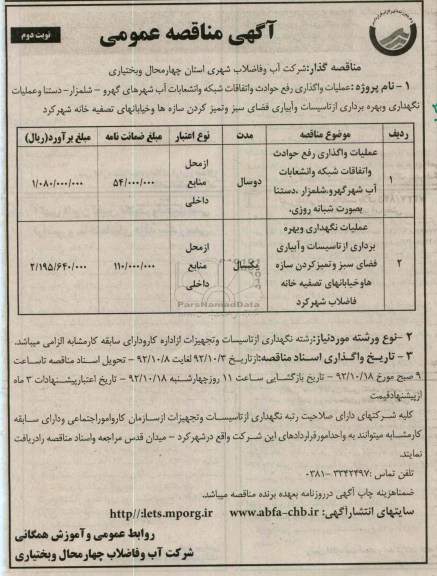 آگهی مناقصه عمومی
نوبت دوم
مناقصه گذار:شرکت آب وفاضلاب شهری استان چهارمحال وبختیاری
۱- نام پروژه :عملیات واگذاری رفع حوادث واتفاقات شبکه وانشعابات آب شهرهای گهرو - شلمزار- دستنا وعملیات
نگهداری وبهره برداری ازتاسیسات وآبیاری فضای سبز وتمیز کردن سازه ها وخیابانهای تصفیه خانه شهرکرد
ردیف موضوع مناقصه مدت نوع اعتبار مبلغ ضمانت نامه مبلغ برآورد(ریال)
۱ عملیات واگذاری رفع حوادث واتفاقات شبکه وانشعابات آب شهرگهرو،شلمزار ،دستنا بصورت شبانه روزی، دوسال ازمحل منابع داخلی ۵۴/۰۰۰/۰۰۰ ۱/۰۸۰/۰۰۰/۰۰۰
۲ عملیات نگهداری وبهره برداری ازتاسیسات وآبیاری فضای سبز وتمیزکردن سازه هاوخیابانهای تصفیه خانه فاضلاب شهرکرد یکسال ازمحل منابع داخلی ۱۱۰/۰۰۰/۰۰۰ ۲/۱۹۵/۶۴۰/۰۰۰
ParsNamadData
۲ -نوع ورشته موردنیاز:رشته نگهداری ازتاسیسات وتجهیزات ازاداره کارودارای سابقه کارمشابه الزامی میباشد.
۳ - تاریخ واگذاری اسناد مناقصه:ازتاریخ ۹۲/۱۰/۳ لغایت ۹۲/۱۰/۸ - تحویل اسناد مناقصه تاساعت
۹ صبح مورخ ۹۲/۱۰/۱۸ - تاریخ بازگشایی ساعت ۱۱ روزچهارشنبه ۹۲/۱۰/۱۸ - تاریخ اعتبارپیشنهادات ۳ ماه
ازپیشنهادقیمت
کلیه شرکتهای دارای صلاحیت رتبه نگهداری ازتاسیسات وتجهیزات ازسازمان کارواموراجتماعی ودارای سابقه
کارمشابه میتوانند به واحدامورقراردادهای این شرکت واقع درشهرکرد - میدان قدس مراجعه واسناد مناقصه رادریافت
نمایند.
تلفن تماس :۳۳۴۲۴۹۷- ۰۳۸۱
ضمناهزینه چاپ آگهی درروزنامه بعهده برنده مناقصه میباشد.
سایتهای انتشارآگهی: www.abfa-chb.ir http//:lets.mporg.ir
روابط عمومی وآموزش همگانی
شرکت آب وفاضلاب چهارمحال وبختیاری